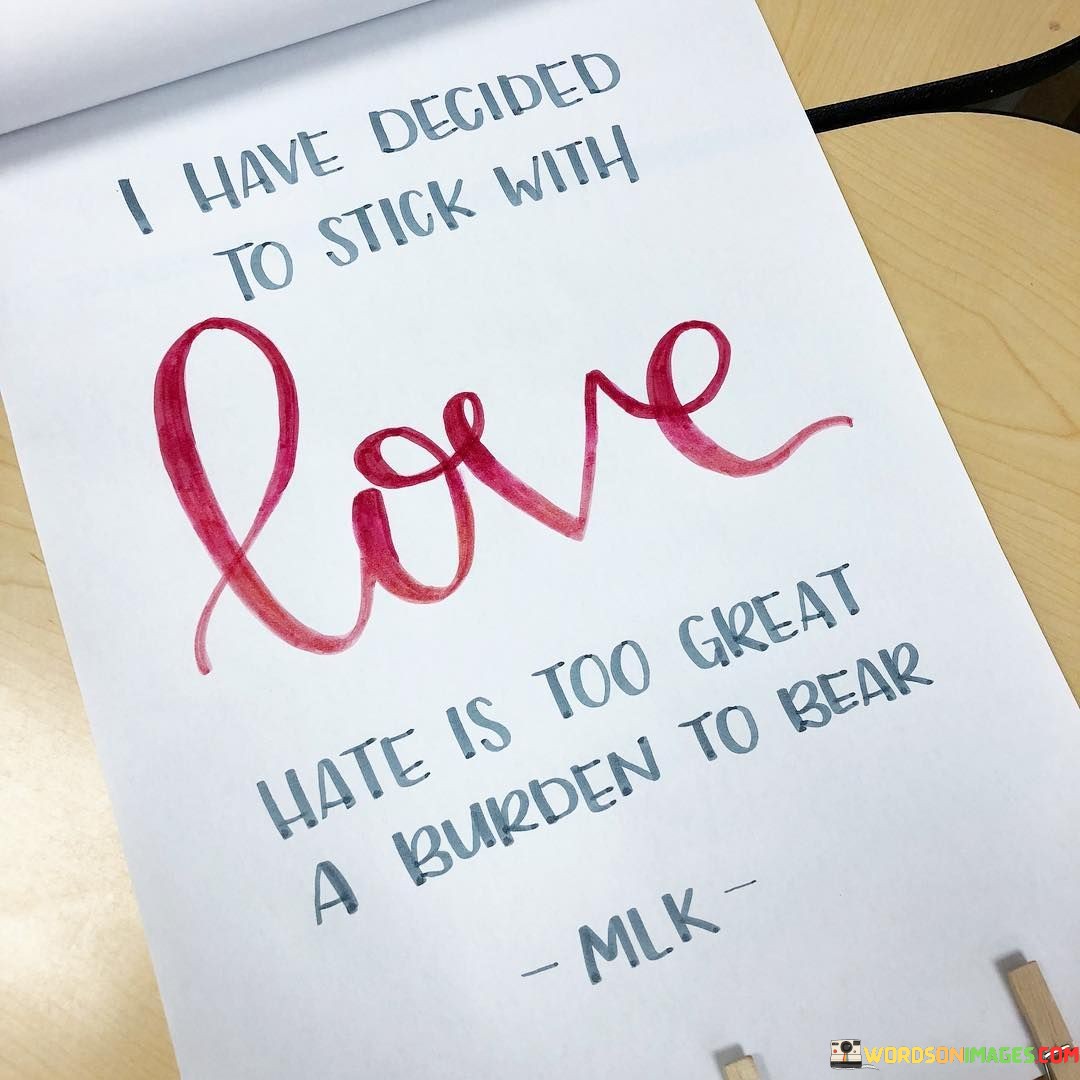 I HAVE DECIDED
TO STICK WITH
love
HATE IS TOO GREAT
A BURDEN TO BEAR
- MLK -
WORDSONIMAGES.COM